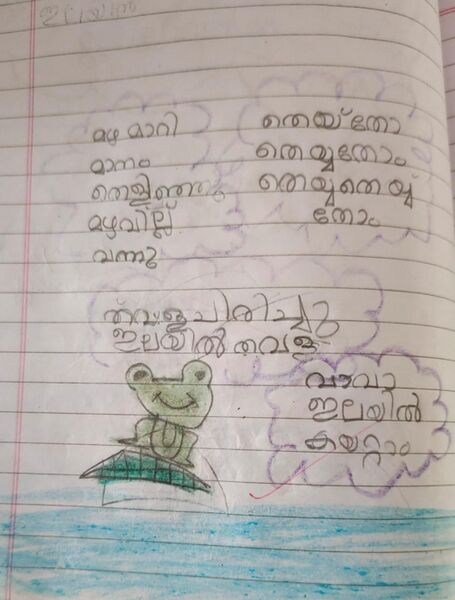 ഇലയിൽ
മഴ മാറി
മാനം
തെളിഞ്ഞു
മഴവില്ല്
വന്നു
തെയ്തോ
തെയ്യതോം
തെയ്യതെയ്യ
തോം
തവളചിരിച്ചു
ഇലയിൽ തവള
വാവാ
ഇലയിൽ
കയറ്റാം